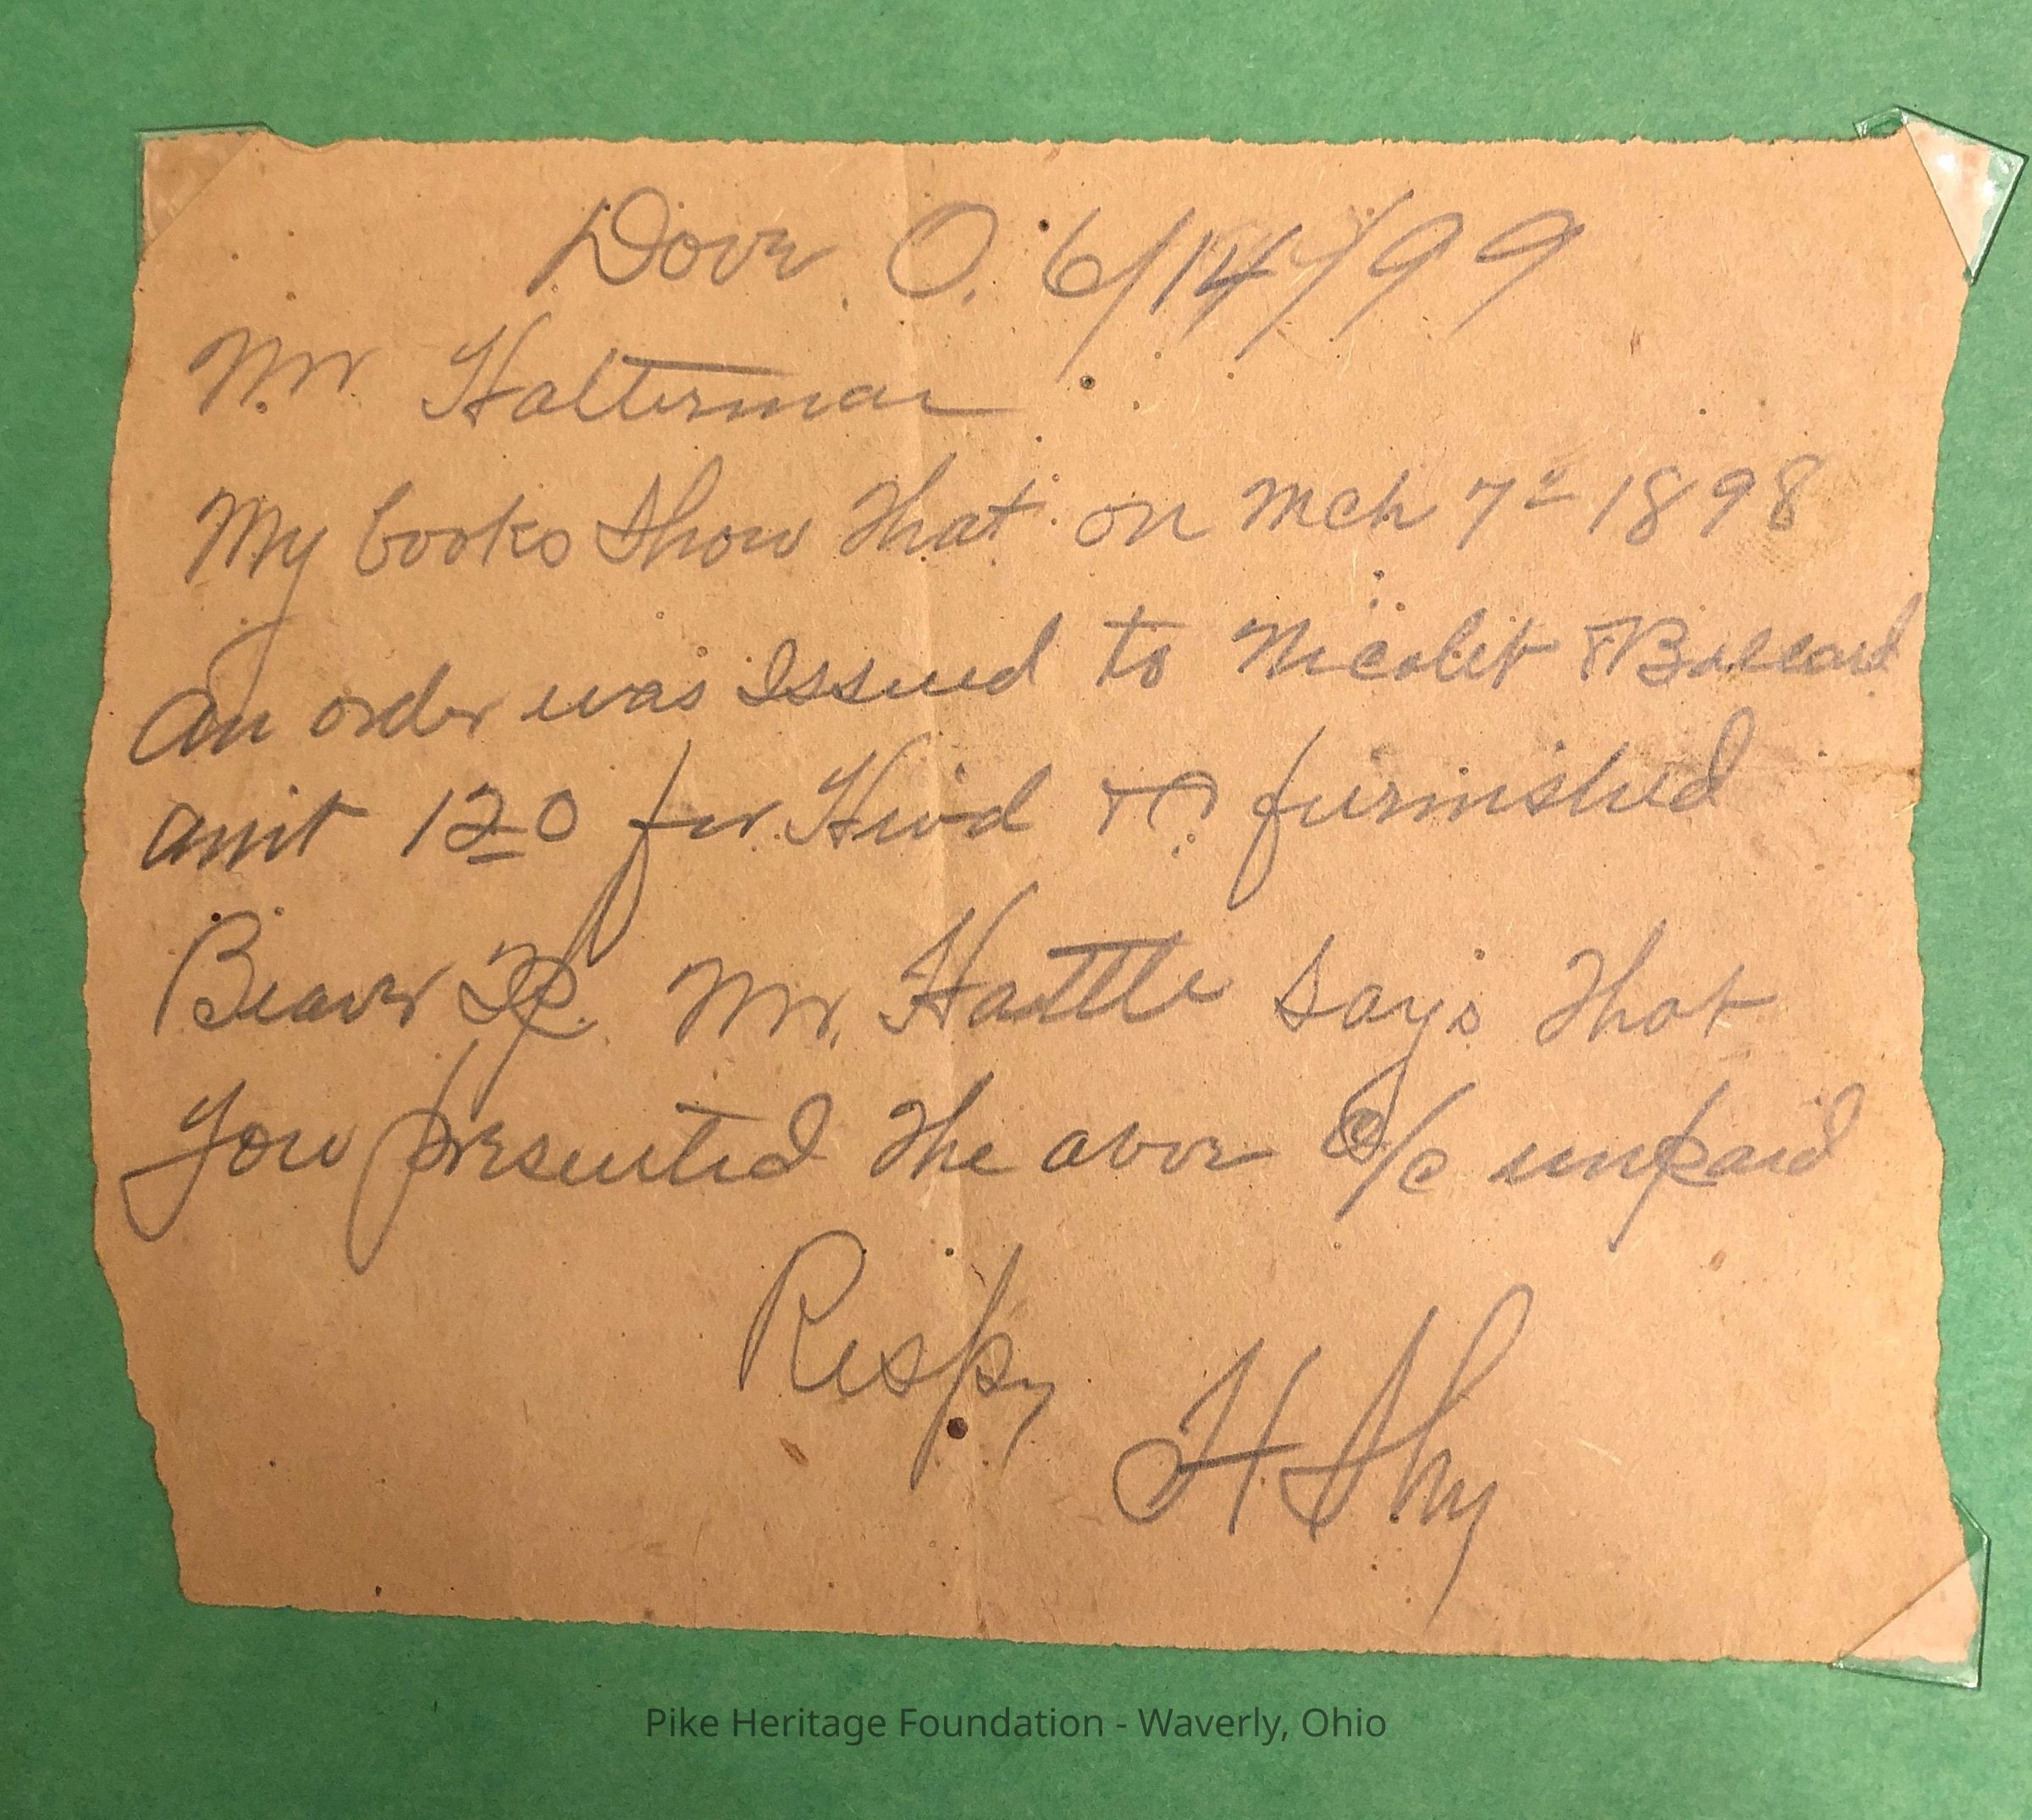 Dove O. 6/14/99
Mr Halterman
My books show that on Mch 7th 1898
an order was Issued to Nicolet & Ballard
amt 120 for &c furnished
Beaver Tp. Mr. Hattle says that
you presented the above a/c unpaid
Respy
H Shy
Pike Heritage Foundation - Waverly, Ohio